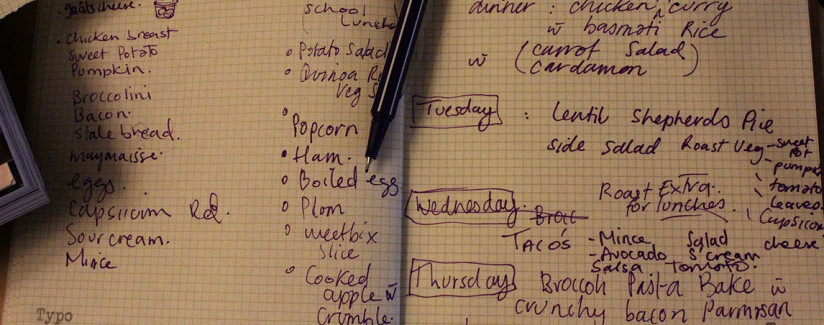 goats cheese.
. chicken breast
sweet potato
Pumpkin.
Broccolini
Bacon.
stale bread.
maymaisse.
eggs.
Capsiicum Red.
Sour cream.
Mince
Typo
school
Lunche
Potato Salad
Quinoa R
Veg S
Popcorn
Ham.
Boiled egg
Plom
weetbix
slice
Cooked
apple w̄
crumble.
dinner : chicken curry
w̄ basmati Rice
w̄ (carrot Salad
cardamon)
Tuesday : Lentil Shepherds Pie
side salad Roast Veg - sweet
pot
- pumpk
Roast Extra
for lunches.
tomato
leaves
Capsicum
cheese
Wednesday. Brocc
TACO'S - Mince Salad
- Avocado s'cream
Salsa Tomato.
Thursday Broccoli Pasta Bake w̄
crunchy bacon Parmesan